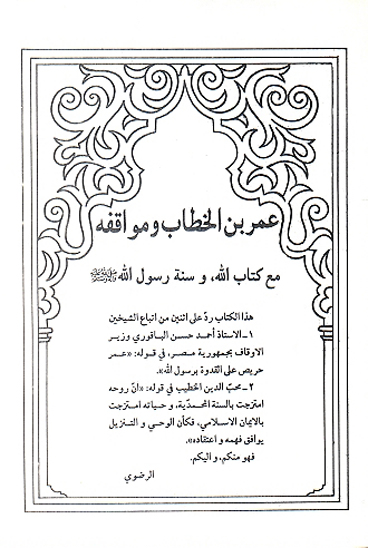 عمر بن الخطاب و مواقفه
مع كتاب الله، و سنة رسول الله ﷺ
هذا الكتاب ردّ على اثنين من اتباع الشيخين
١ـ الاستاذ أحمد حسن الباقوري وزير
الاوقاف بجمهورية مصر، في قوله: «عمر
حريص على القدوة برسول الله».
٢ـ محبّ الدين الخطيب في قوله: «انّ روحه
امتزجت بالسنة المحمديّة، و حياته امتزجت
بالايمان الاسلامي، فكأن الوحي و التنزيل
يوافق فهمه و اعتقاده».
فهو منكم، و اليكم.
الرضوي